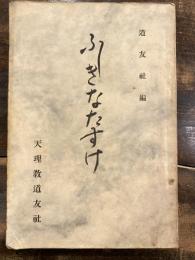 道友社編
ふしぎなたすけ
天理教道友社